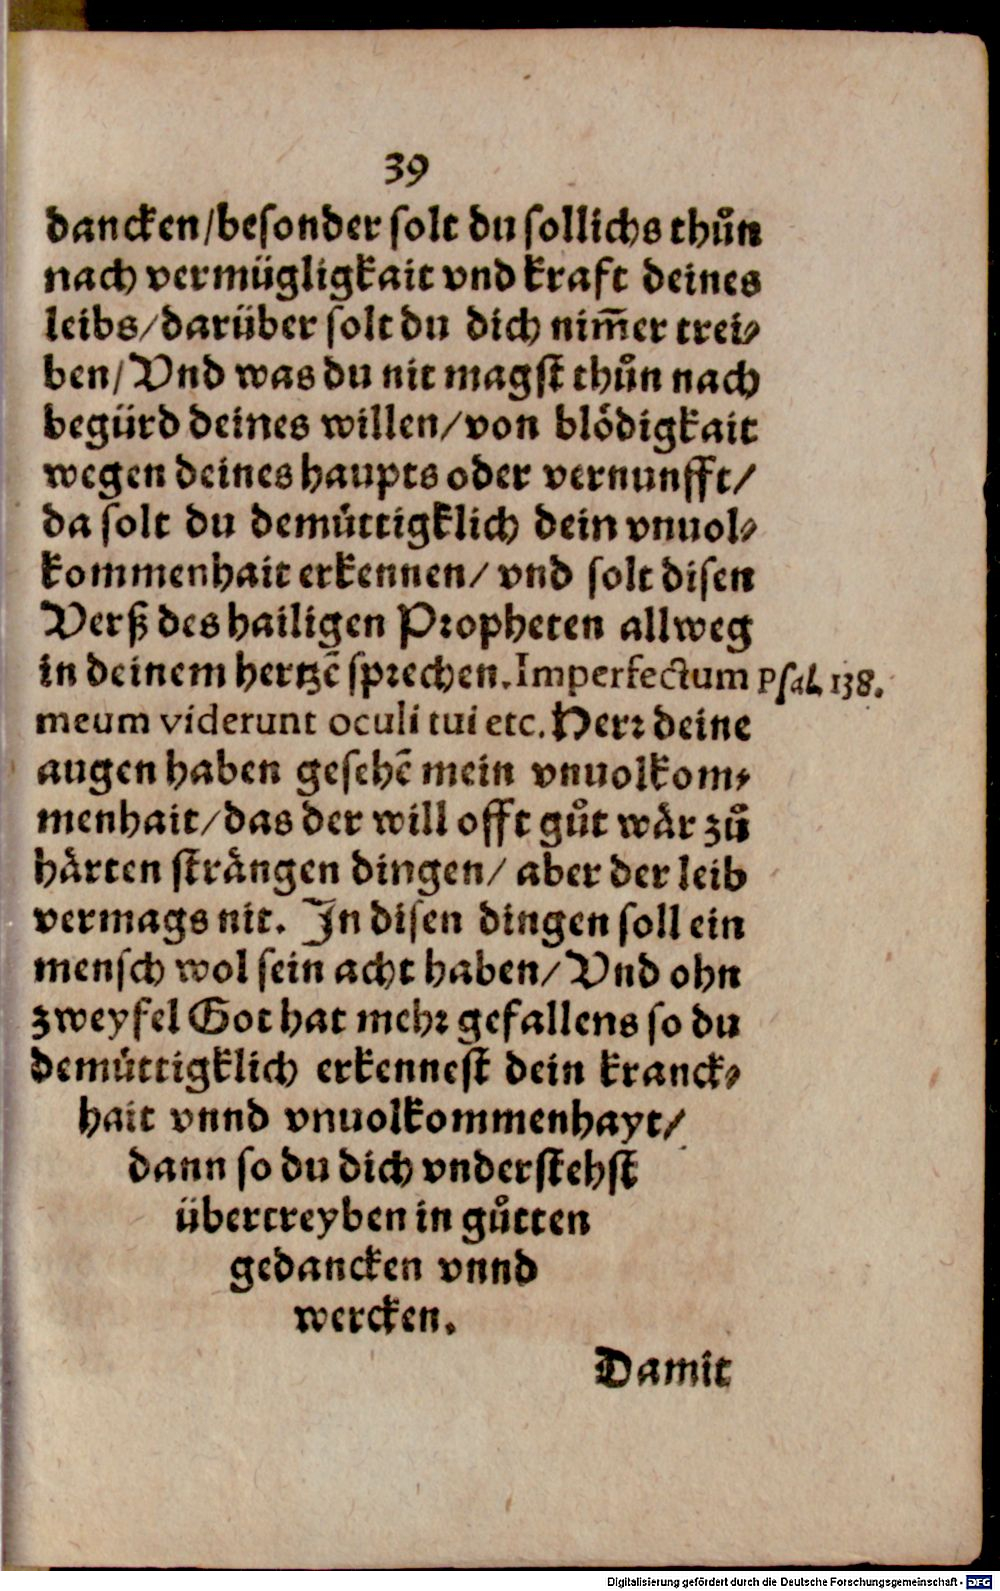 39
dancken/besonder solt du sollichs thůn
nach vermügligkait vnd kraft deines
leibs/darüber solt du dich nim̃er trei⸗
ben/Vnd was du nit magst thůn nach
begürd deines willen/von blödigkait
wegen deines haupts oder vernunfft/
da solt du demüttigklich dein vnuol⸗
kommenhait erkennen/ vnd solt disen
Verß des hailigen Propheten allweg
in deinem hertzẽ sprechen.Imperfectum Psal. 138.
meum viderunt oculi tui etc. Herr deine
augen haben gesehẽ mein vnuolkom⸗
menhait/das der will offt gůt wår zů
hårten strången dingen/ aber der leib
vermags nit. In disen dingen soll ein
mensch wol sein acht haben/Vnd ohn
zweyfel Got hat mehr gefallens so du
demüttigklich erkennest dein kranck⸗
hait vnnd vnuolkommenhayt/
dann so du dich vnderstehst
übertreyben in gůtten
gedancken vnnd
wercken.
Damit
Digitalisierung gefördert durch die Deutsche Forschungsgemeinschaft - DFG